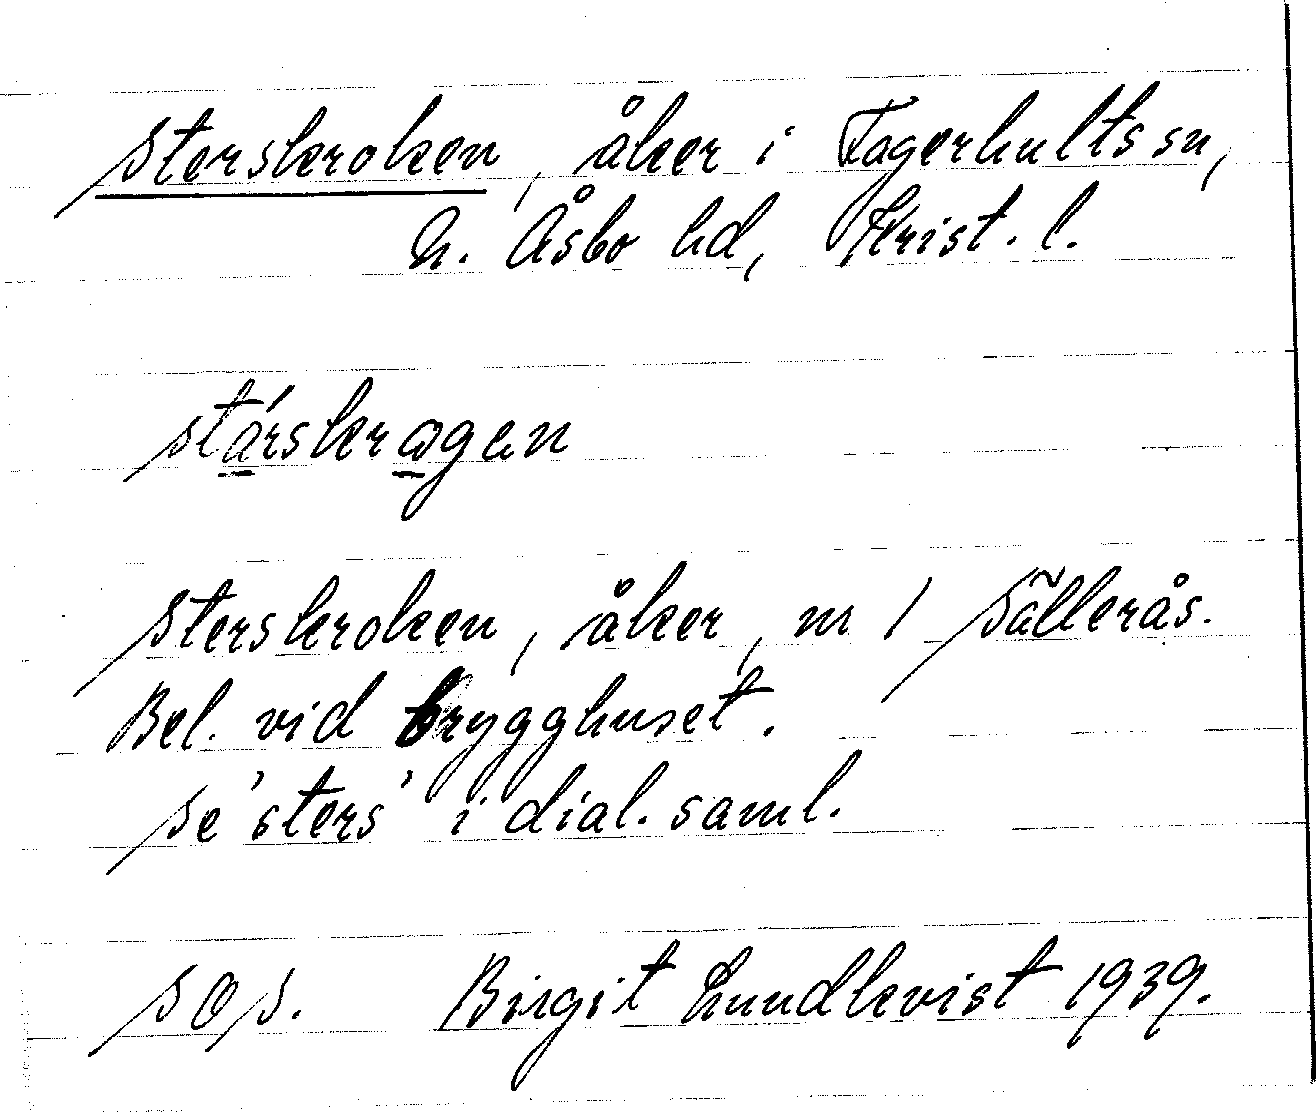 Sterskroken, åker i Fagerhults sn,
N. Åsbo hd, Krist. l.
stárskrogen
Sterskroken, åker, nr 1 Sällerås.
Bel. vid brygghuset.
Se 'sters' i dial. saml.
SOS. Birgit Lundkvist 1939.